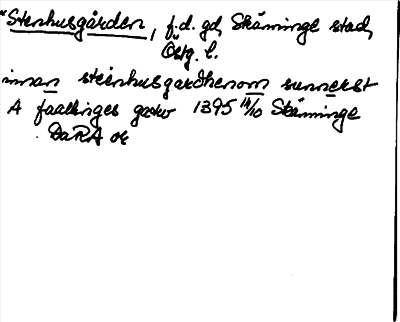 "Stenhusgården, f.d. gd, Skänninge stad,
Östg. l.
innan steinhusgardhenom sunnerst
A faallinges gatw 1395 14/10 Skänninge
DaRA or